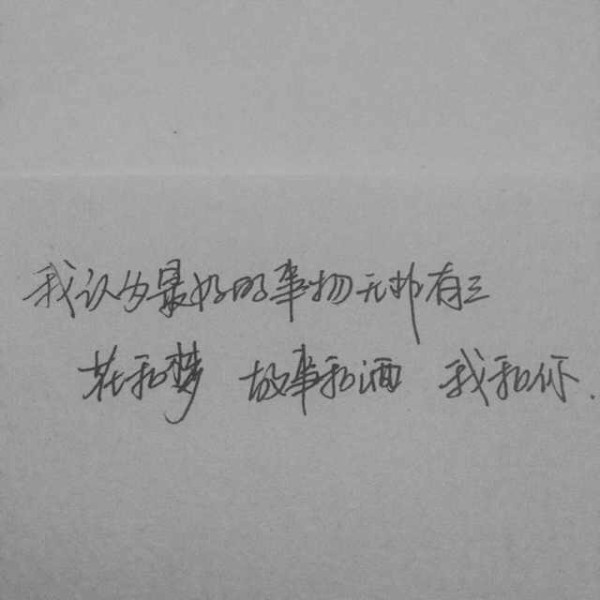 我认为最好的事物无非有三
花和梦 故事和酒 我和你.